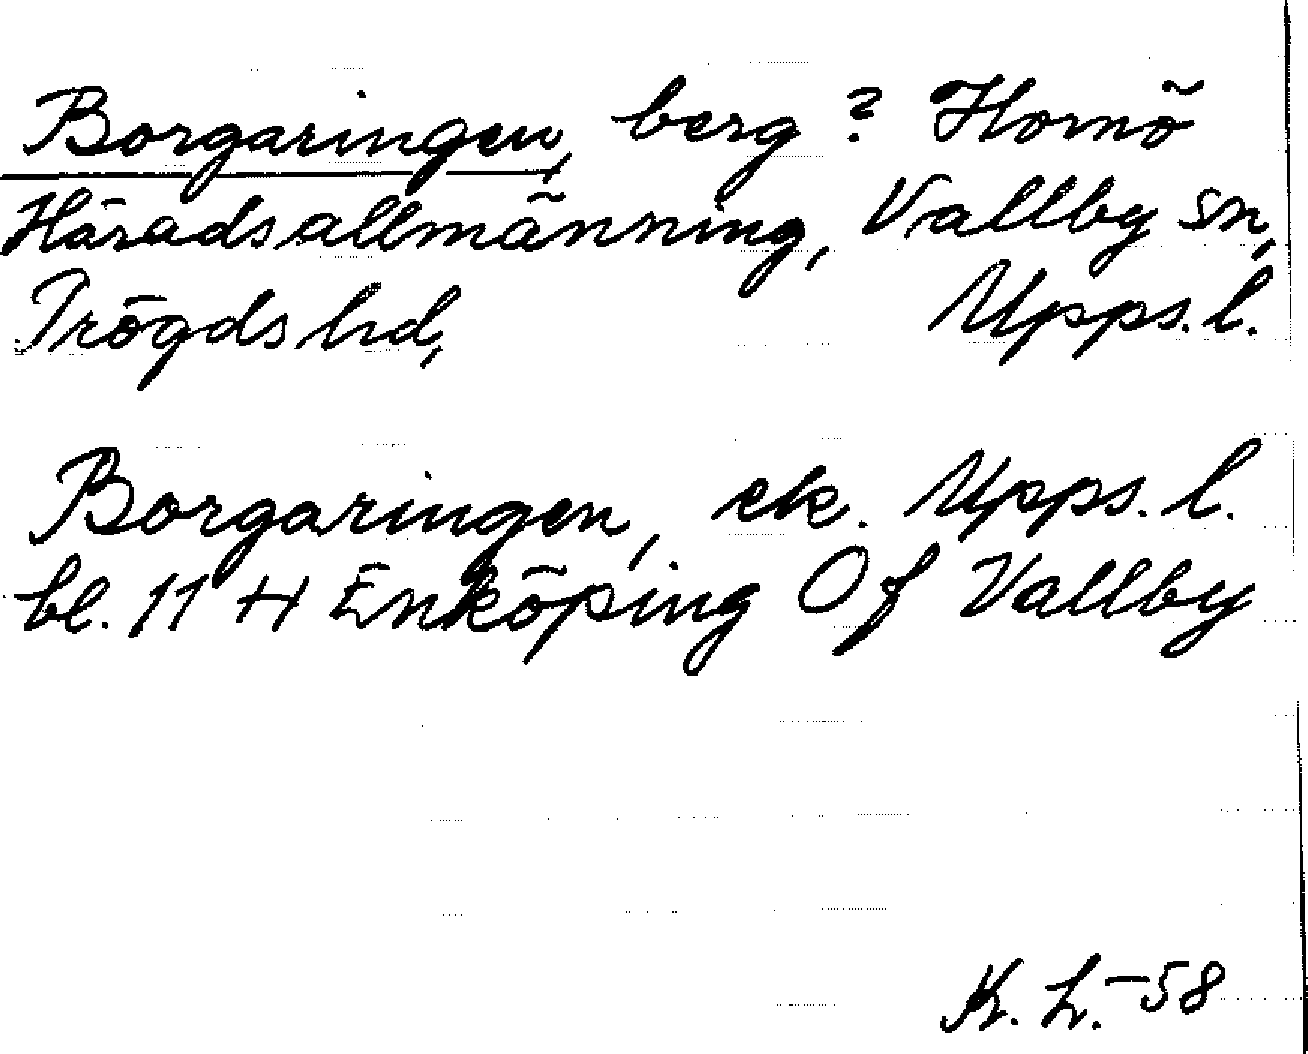 Borgaringen, berg? Homö
Häradsallmänning, Vallby sn,
Trögds hd, Upps. l.
Borgaringen, ek. Upps. l.
bl. 11 H Enköping Of Vallby
K. L. -58